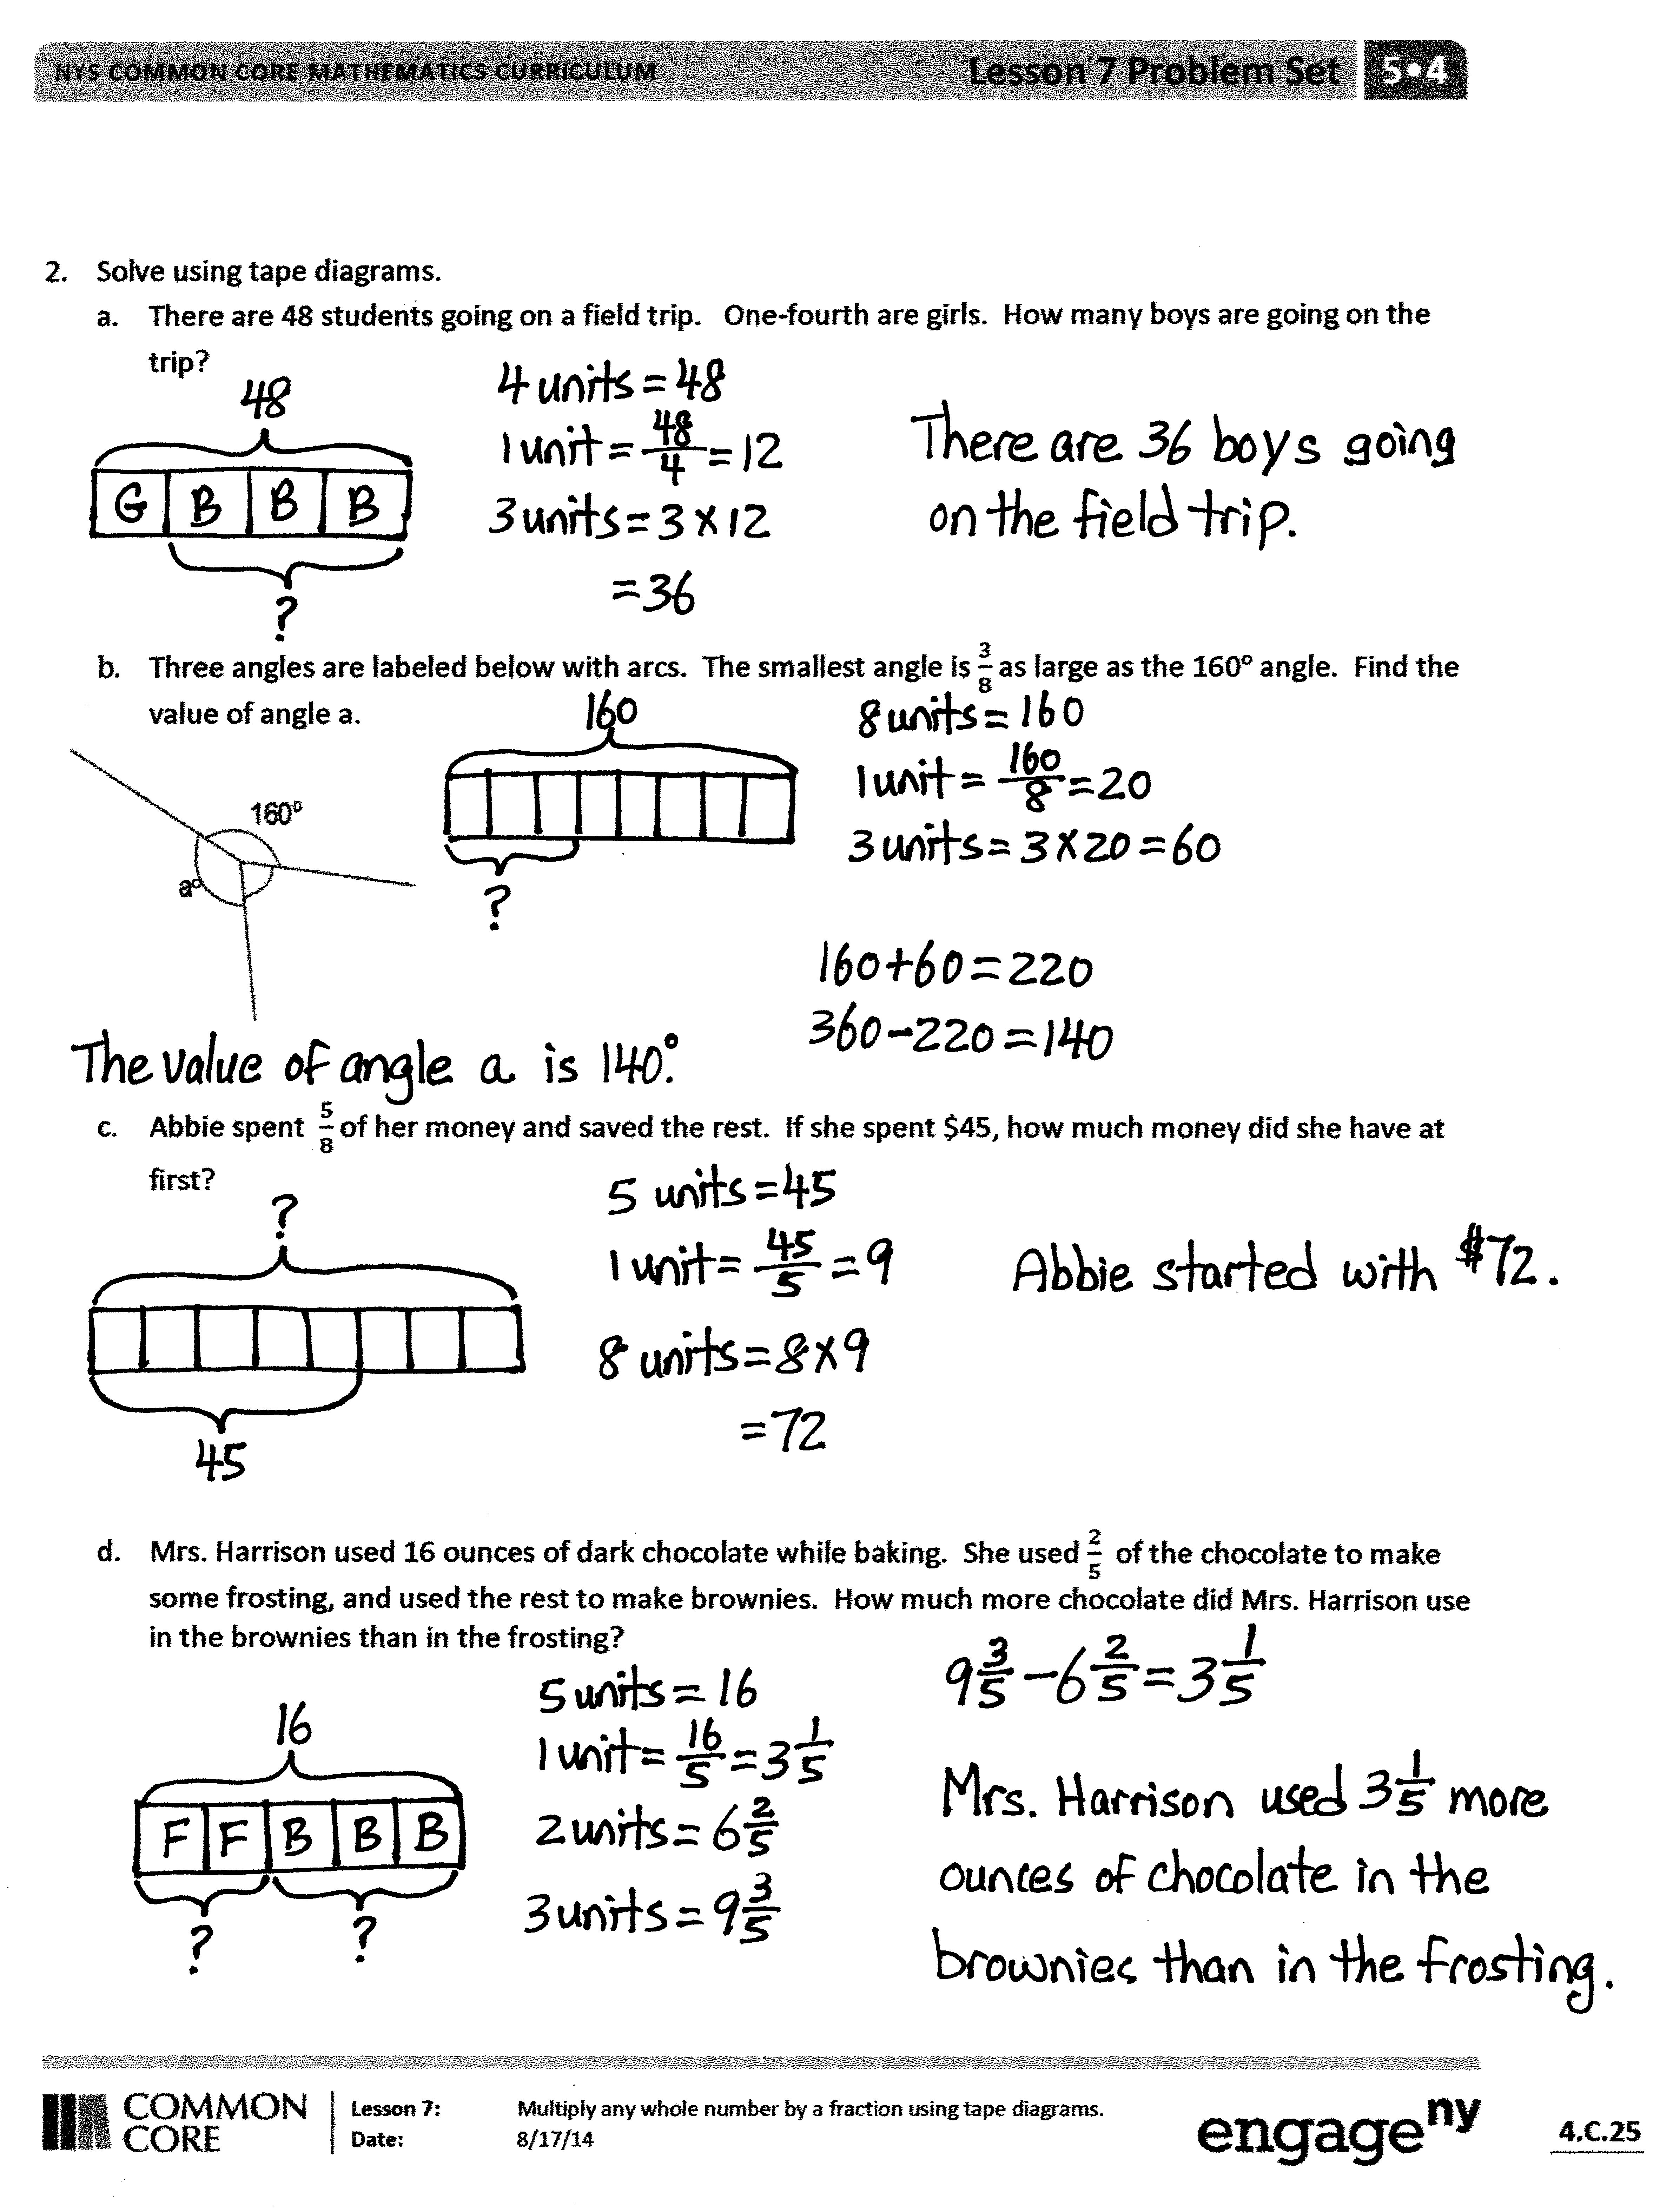 NYS COMMON CORE MATHEMATICS CURRICULUM Lesson 7 Problem Set 5•4
2. Solve using tape diagrams.
a. There are 48 students going on a field trip. One-fourth are girls. How many boys are going on the
trip?
48
G B B B
?
4 units = 48
1 unit = 48/4 = 12
3 units = 3 × 12
= 36
There are 36 boys going
on the field trip.
b. Three angles are labeled below with arcs. The smallest angle is 3/8 as large as the 160° angle. Find the
value of angle a.
160°
a°
160
?
8 units = 160
1 unit = 160/8 = 20
3 units = 3 × 20 = 60
160 + 60 = 220
360 − 220 = 140
The value of angle a is 140°.
c. Abbie spent 5/8 of her money and saved the rest. If she spent $45, how much money did she have at
first?
?
45
5 units = 45
1 unit = 45/5 = 9
8 units = 8 × 9
= 72
Abbie started with $72.
d. Mrs. Harrison used 16 ounces of dark chocolate while baking. She used 2/5 of the chocolate to make
some frosting, and used the rest to make brownies. How much more chocolate did Mrs. Harrison use
in the brownies than in the frosting?
16
F F B B B
? ?
5 units = 16
1 unit = 16/5 = 3 1/5
2 units = 6 2/5
3 units = 9 3/5
9 3/5 − 6 2/5 = 3 1/5
Mrs. Harrison used 3 1/5 more
ounces of chocolate in the
brownies than in the frosting.
COMMON
CORE
Lesson 7: Multiply any whole number by a fraction using tape diagrams.
Date: 8/17/14
engage ny
4.C.25